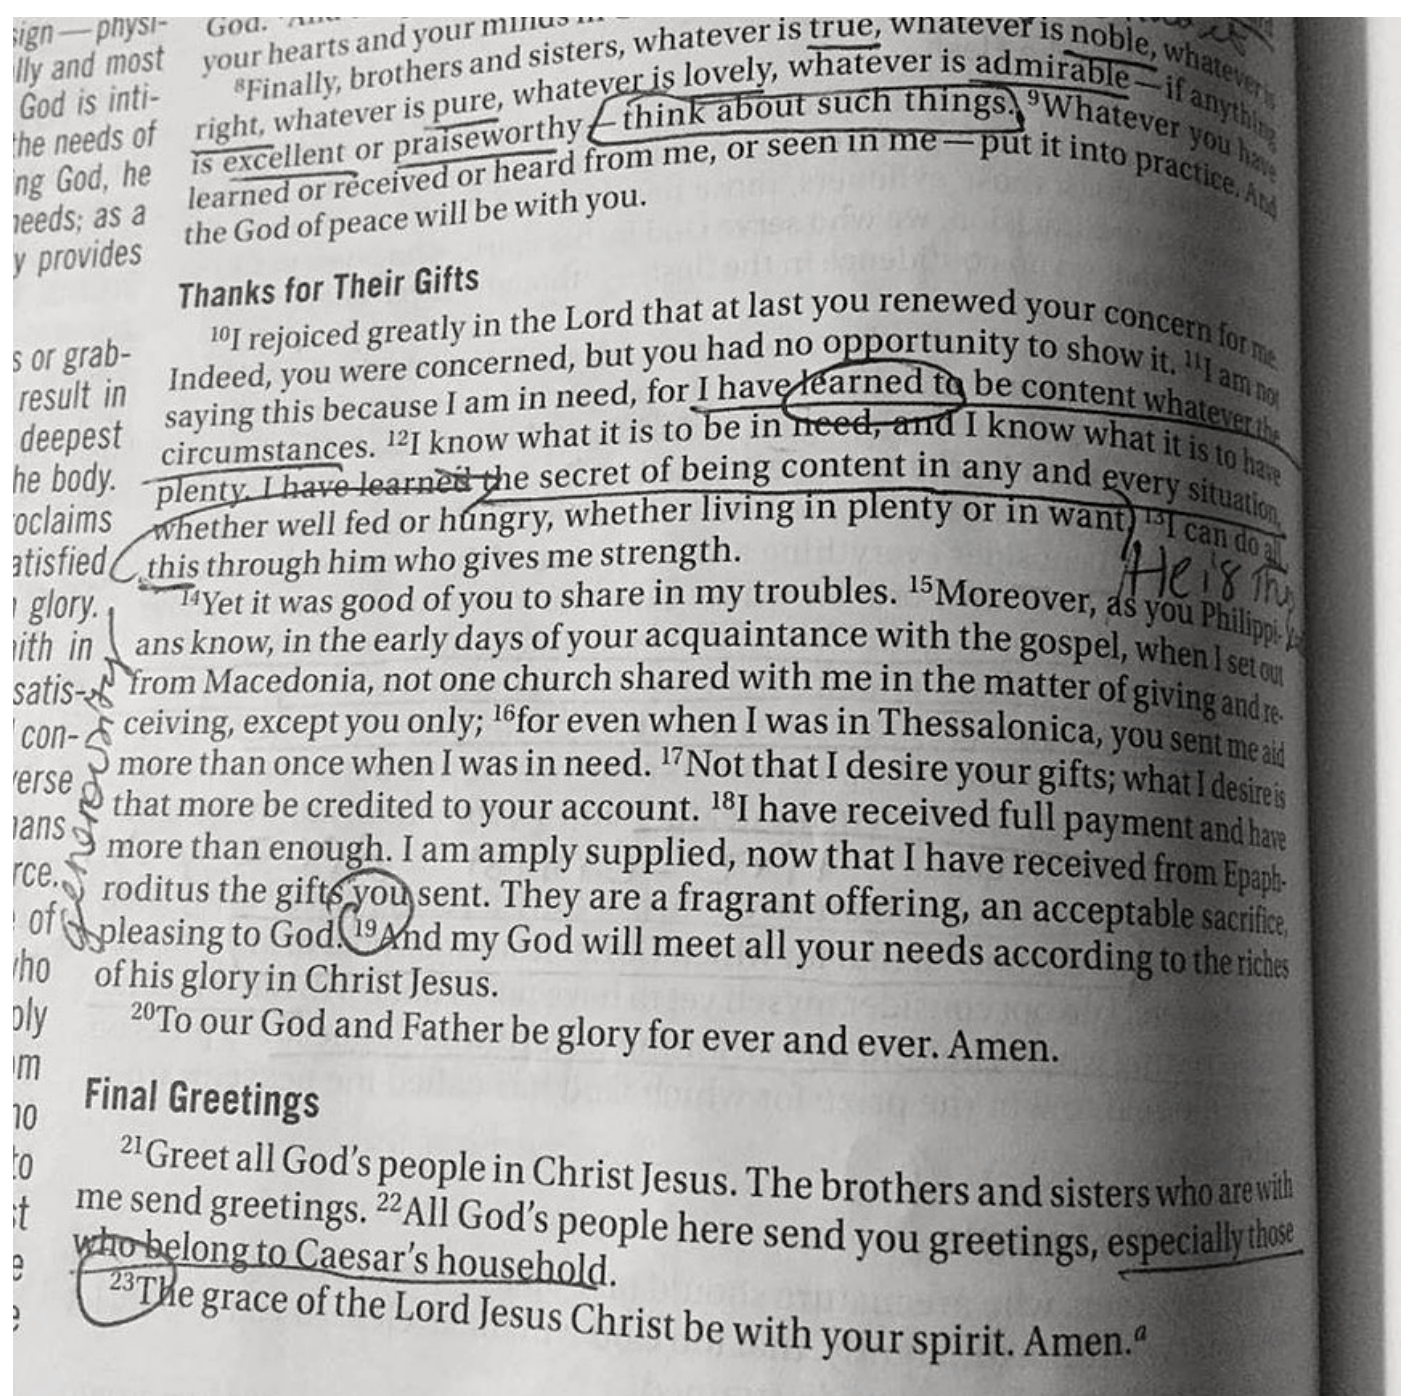 sign — physi-
lly and most
God is inti-
the needs of
ng God, he
needs; as a
y provides
s or grab-
result in
deepest
he body.
oclaims
atisfied
glory.
ith in
satis-
con-
verse
ans
rce.
of
who
ply
m
no
to
st
e
e
God.
your hearts and your minds in
⁸Finally, brothers and sisters, whatever is true, whatever is noble, whatever is
right, whatever is pure, whatever is lovely, whatever is admirable — if anything
is excellent or praiseworthy — think about such things. ⁹Whatever you have
learned or received or heard from me, or seen in me — put it into practice. And
the God of peace will be with you.
Thanks for Their Gifts
¹⁰I rejoiced greatly in the Lord that at last you renewed your concern for me.
Indeed, you were concerned, but you had no opportunity to show it. ¹¹I am not
saying this because I am in need, for I have learned to be content whatever the
circumstances. ¹²I know what it is to be in need, and I know what it is to have
plenty. I have learned the secret of being content in any and every situation,
whether well fed or hungry, whether living in plenty or in want. ¹³I can do all
this through him who gives me strength.
He is
¹⁴Yet it was good of you to share in my troubles. ¹⁵Moreover, as you Philippi-
ans know, in the early days of your acquaintance with the gospel, when I set out
from Macedonia, not one church shared with me in the matter of giving and re-
ceiving, except you only; ¹⁶for even when I was in Thessalonica, you sent me aid
more than once when I was in need. ¹⁷Not that I desire your gifts; what I desire is
that more be credited to your account. ¹⁸I have received full payment and have
more than enough. I am amply supplied, now that I have received from Epaph-
roditus the gifts you sent. They are a fragrant offering, an acceptable sacrifice,
pleasing to God. ¹⁹And my God will meet all your needs according to the riches
of his glory in Christ Jesus.
generousity
²⁰To our God and Father be glory for ever and ever. Amen.
Final Greetings
²¹Greet all God's people in Christ Jesus. The brothers and sisters who are with
me send greetings. ²²All God's people here send you greetings, especially those
who belong to Caesar's household.
²³The grace of the Lord Jesus Christ be with your spirit. Amen.ᵃ